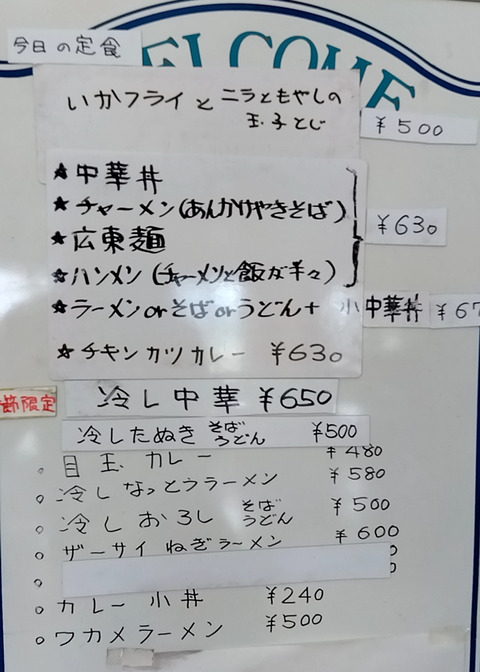 WELCOME
今日の定食
いかフライとニラともやしの
玉子とじ
¥500
★中華丼
★チャーメン(あんかけやきそば)
★広東麺
★ハンメン(チャーメンと飯が半々)
¥630
★ラーメンorそばorうどん+小中華丼 ¥67
★チキンカツカレー ¥630
節限定 冷し中華 ¥650
冷したぬき そば うどん ¥500
○目玉カレー ¥480
○冷しなっとうラーメン ¥580
○冷しおろし そば うどん ¥500
○ザーサイねぎラーメン ¥600
○
○カレー小丼 ¥240
○ワカメラーメン ¥500